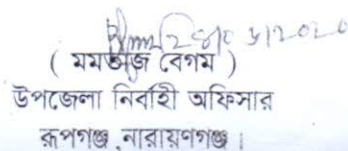 ( মমতাজ বেগম )
উপজেলা নির্বাহী অফিসার
রূপগঞ্জ,নারায়ণগঞ্জ।